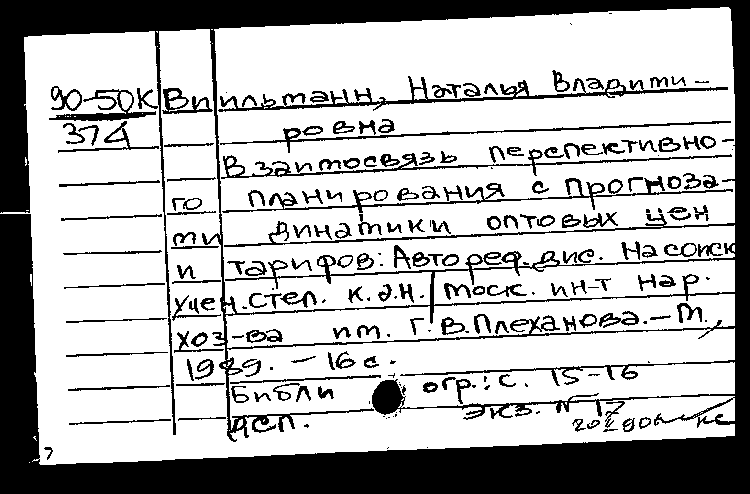 90-50К Виильманн, Наталья Владими-
374 ровна
Взаимосвязь перспективно-
го планирования с прогноза-
ми динамики оптовых цен
и тарифов: Автореф. дис. На соиск
учен. степ. к.э.н. / Моск. ин-т нар.
хоз-ва им. Г.В.Плеханова. – М.,
1989. – 16 с.
Библиогр.: с. 15-16
экз. N 17